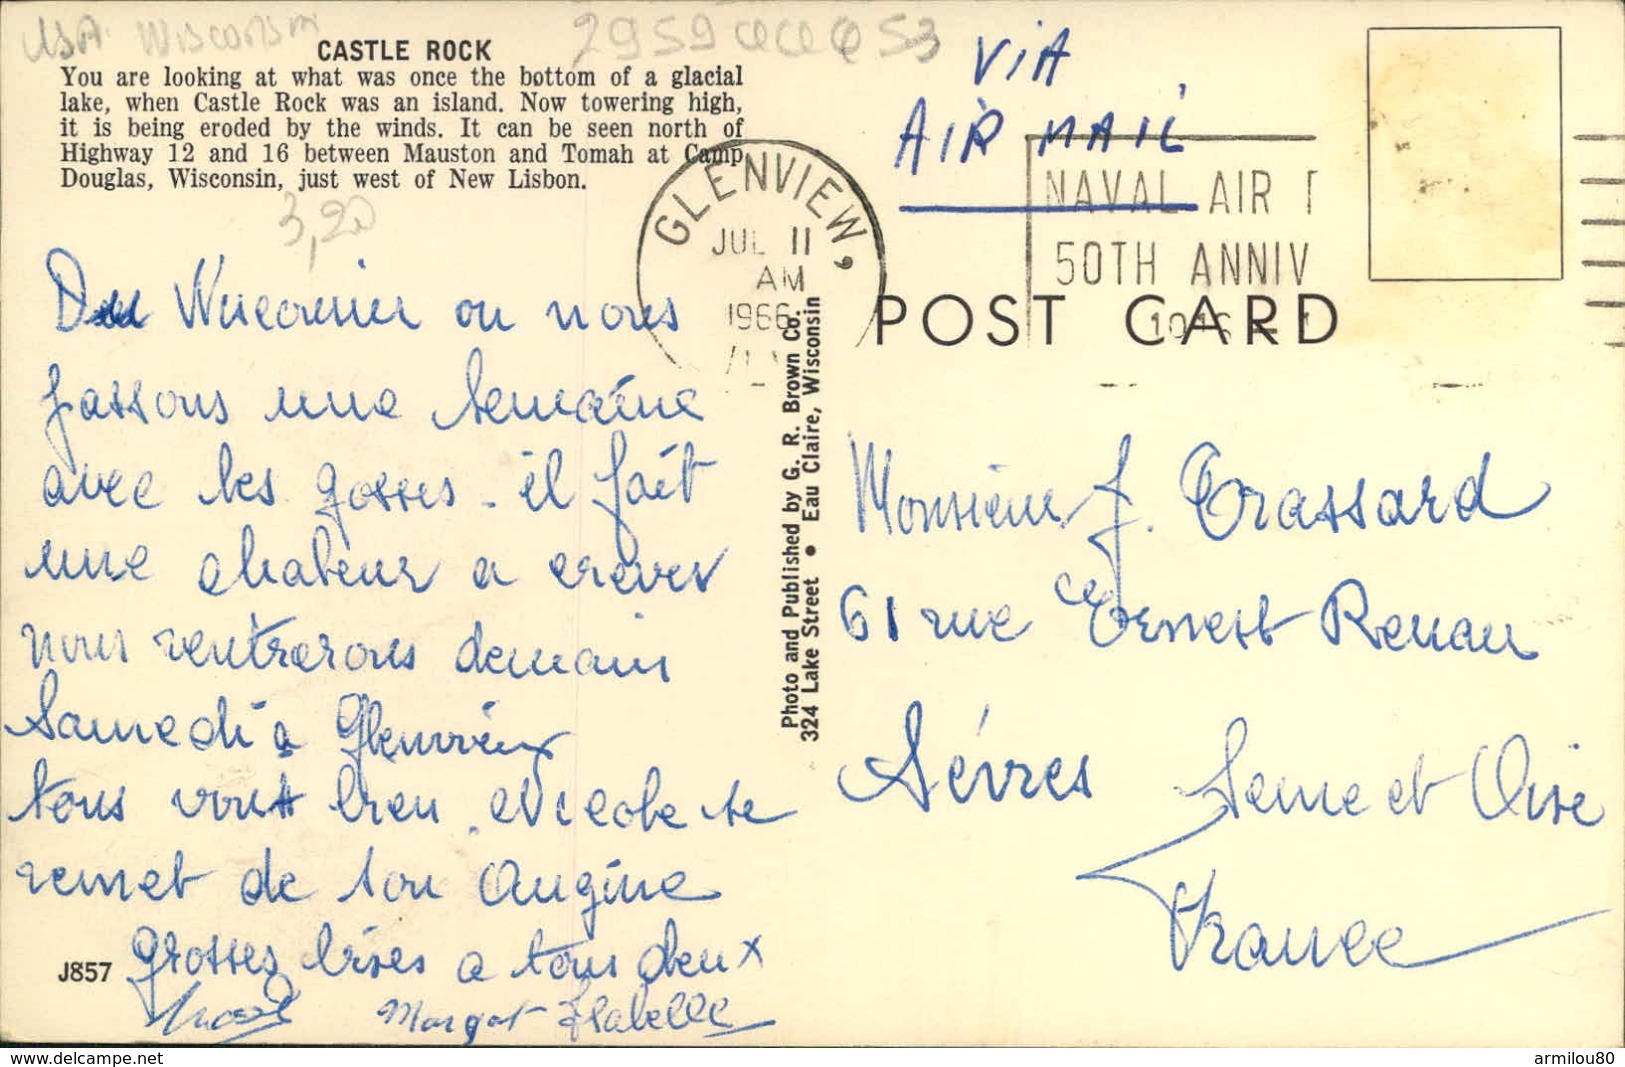 USA Wisconsin
2959
53
CASTLE ROCK
You are looking at what was once the bottom of a glacial
lake, when Castle Rock was an island. Now towering high,
it is being eroded by the winds. It can be seen north of
Highway 12 and 16 between Mauston and Tomah at Camp
Douglas, Wisconsin, just west of New Lisbon.
3,20
ViA
AIR MAIL
GLENVIEW,
JUL 11
AM
1966
NAVAL AIR
50TH ANNIV
POST CARD
Du Wisconsin ou nous
passons une semaine
avec les gosses - il fait
une chaleur a crever
nous rentrerons demain
Samedi a Glenview
tous vont bien. Nicole se
remet de son Angine
grosses bises a tous deux
Margot Isabelle
J857
Photo and Published by G. R. Brown Co.
324 Lake Street • Eau Claire, Wisconsin
Monsieur J. Trassard
61 rue Ernest Renan
Sévres Seine et Oise
France
armilou80
www.delcampe.net